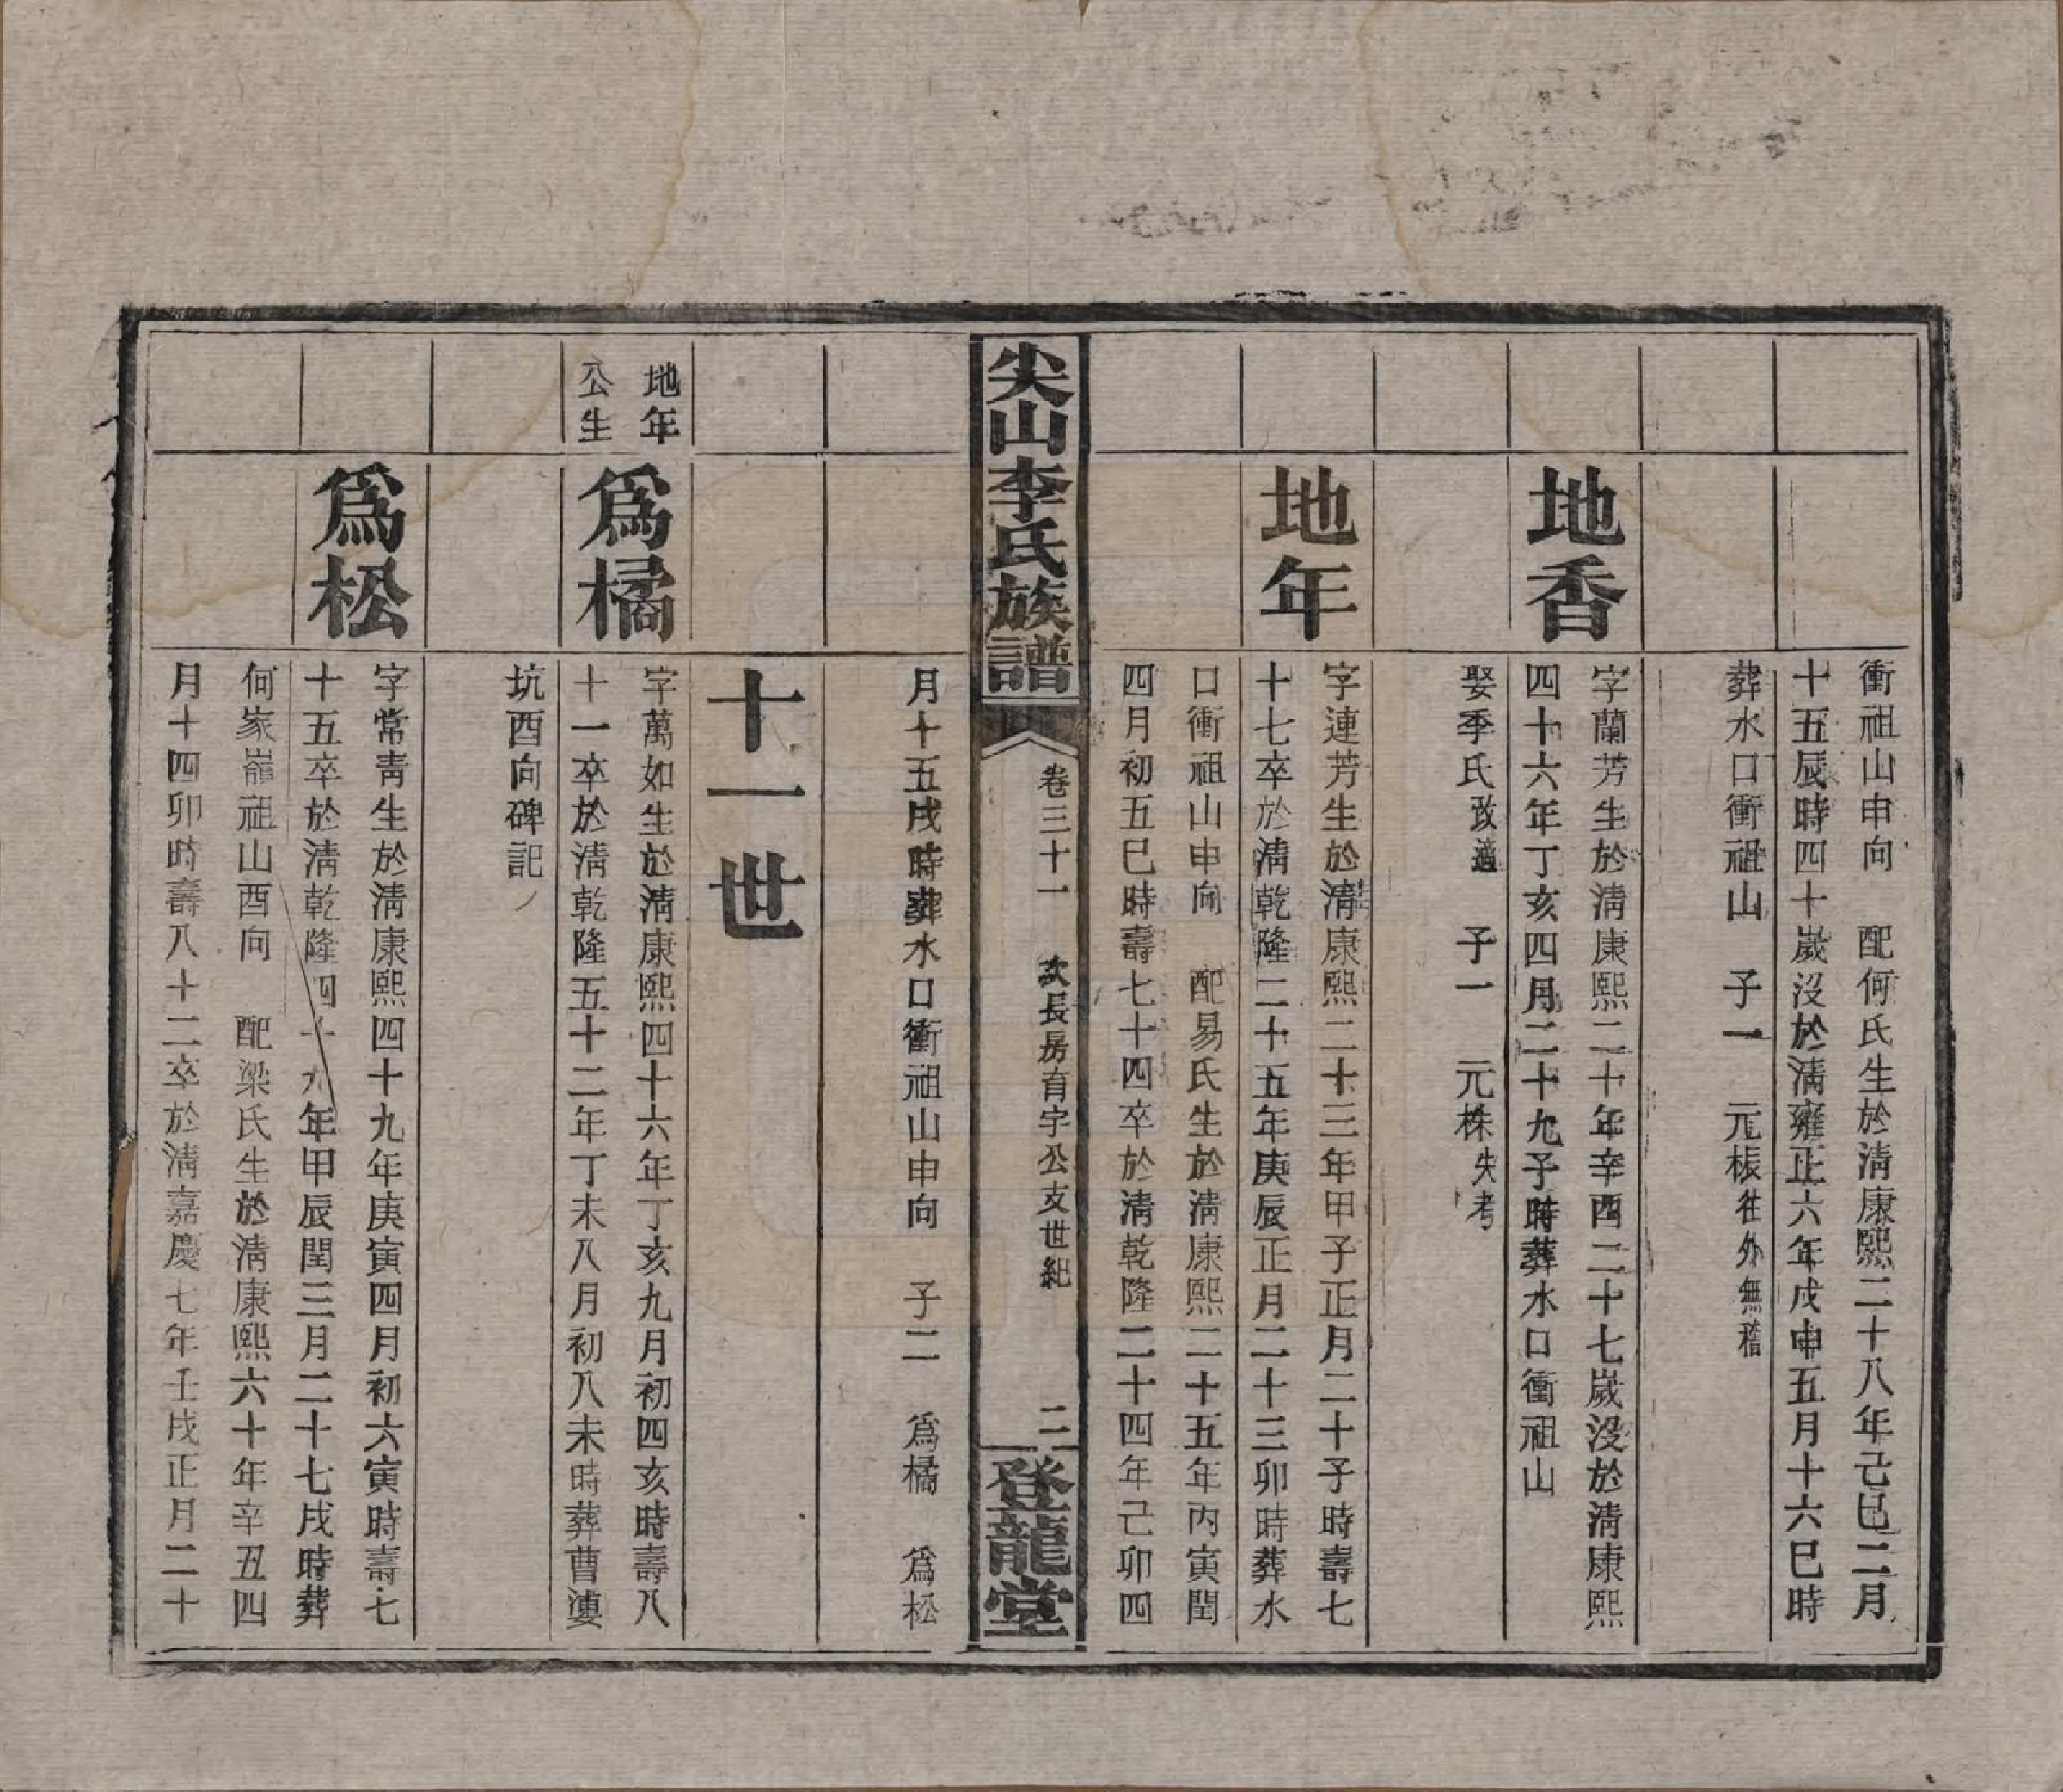 衝祖山申向　配何氏生於清康熙二十八年己巳二月
十五辰時四十歲沒於清雍正六年戊申五月十六巳時
葬水口衝祖山　子一　元桭往外無稽
地香
字蘭芳生於清康熙二十年辛酉二十七歲沒於清康熙
四十六年丁亥四月二十九子時葬水口衝祖山
娶季氏改適　子一　元株失考
地年
字連芳生於清康熙二十三年甲子正月二十子時壽七
十七卒於清乾隆二十五年庚辰正月二十三卯時葬水
口衝祖山申向　配易氏生於清康熙二十五年丙寅閏
四月初五巳時壽七十四卒於清乾隆二十四年己卯四
尖山李氏族譜
卷三十一　次長房育字公支世紀　二
登龍堂
月十五戌時葬水口衝祖山申向　子二　爲橘　爲松
十一世
地年
公生
爲橘
字萬如生於清康熙四十六年丁亥九月初四亥時壽八
十一卒於清乾隆五十二年丁未八月初八未時葬曹漊
坑酉向碑記
爲松
字常青生於清康熙四十九年庚寅四月初六寅時壽七
十五卒於清乾隆四十九年甲辰閏三月二十七戌時葬
何家巃祖山酉向　配梁氏生於清康熙六十年辛丑四
月十四卯時壽八十二卒於清嘉慶七年壬戌正月二十